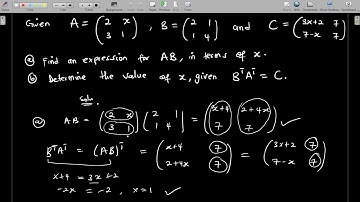 Given A = (2 x / 3 1), B = (2 1 / 1 4) and C = (3x+2 7 / 7-x 7)
(a) Find an expression for AB, in terms of x.
(b) Determine the value of x, given BᵀAᵀ = C.
Soln
(a) AB = (2 x / 3 1)(2 1 / 1 4) = (x+4 2+4x / 7 7) ✓
BᵀAᵀ = (AB)ᵀ = (x+4 7 / 2+4x 7) = (3x+2 7 / 7-x 7)
x+4 = 3x+2
-2x = -2, x=1 ✓